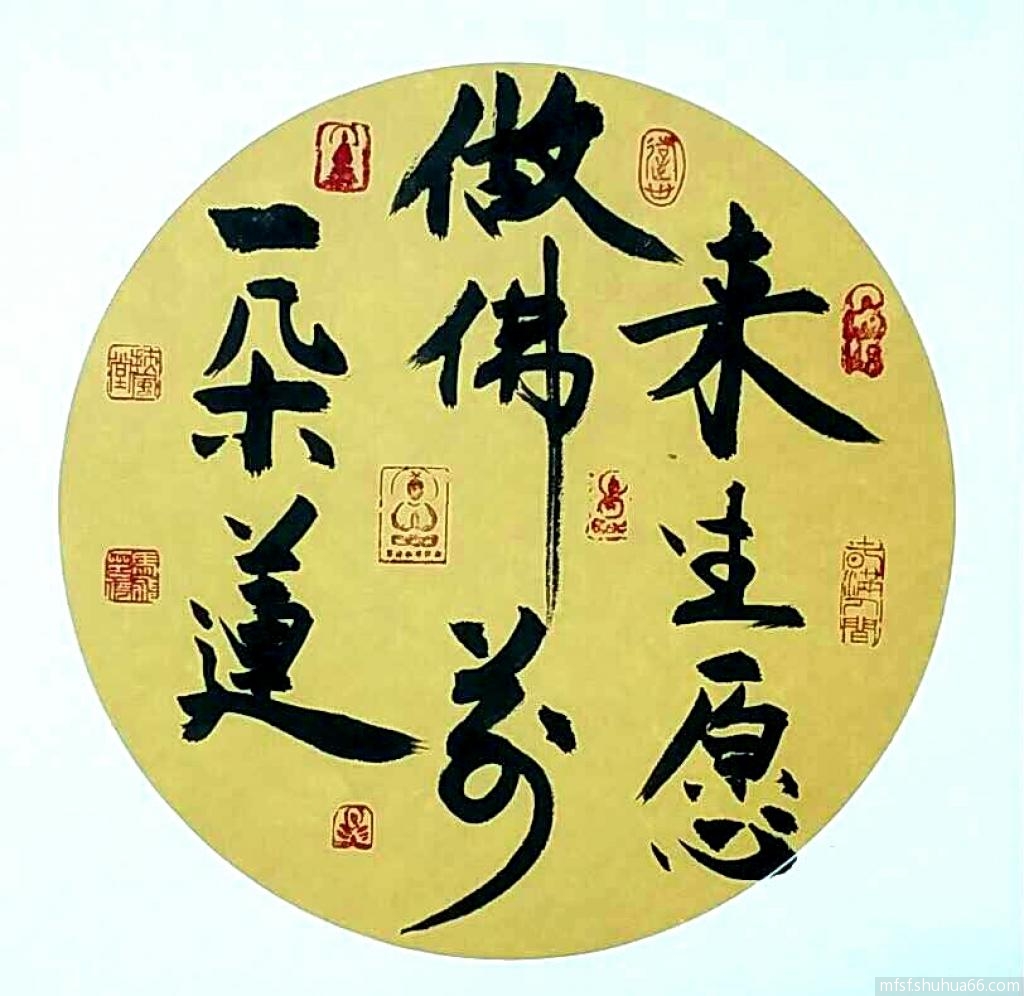 来生愿
做佛前
一朵莲
mfsf.shuhua66.com